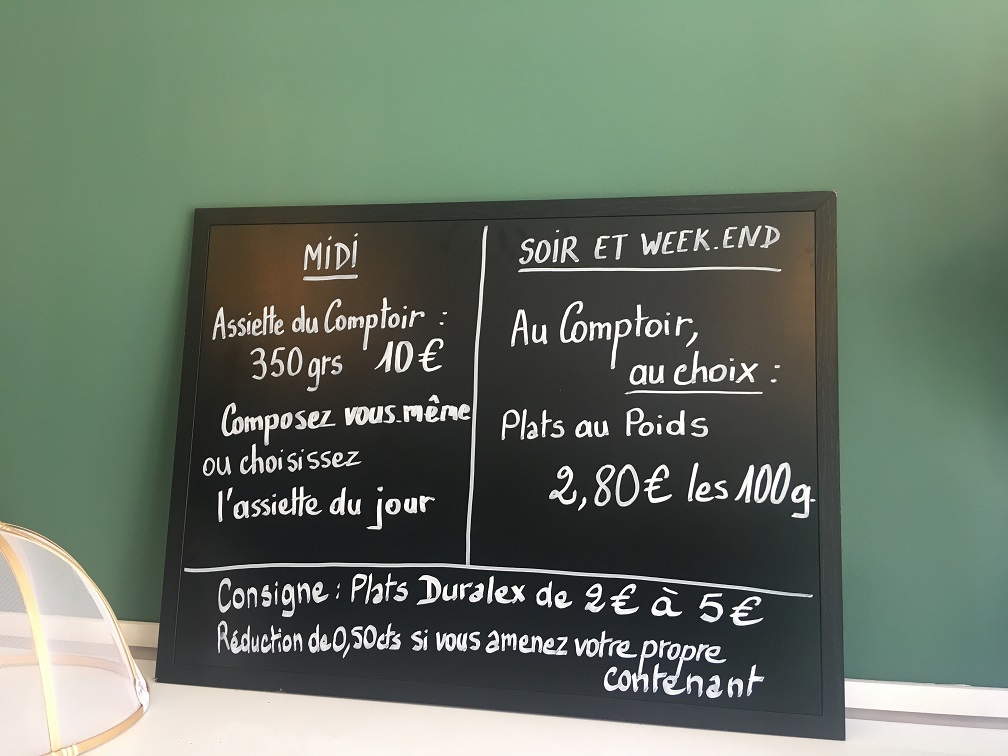 MIDI
Assiette du Comptoir :
350 grs 10€
Composez vous-même
ou choisissez
l'assiette du jour
SOIR ET WEEK-END
Au Comptoir,
au choix :
Plats au Poids
2,80€ les 100g
Consigne : Plats Duralex de 2€ à 5€
Réduction de 0,50cts si vous amenez votre propre
contenant